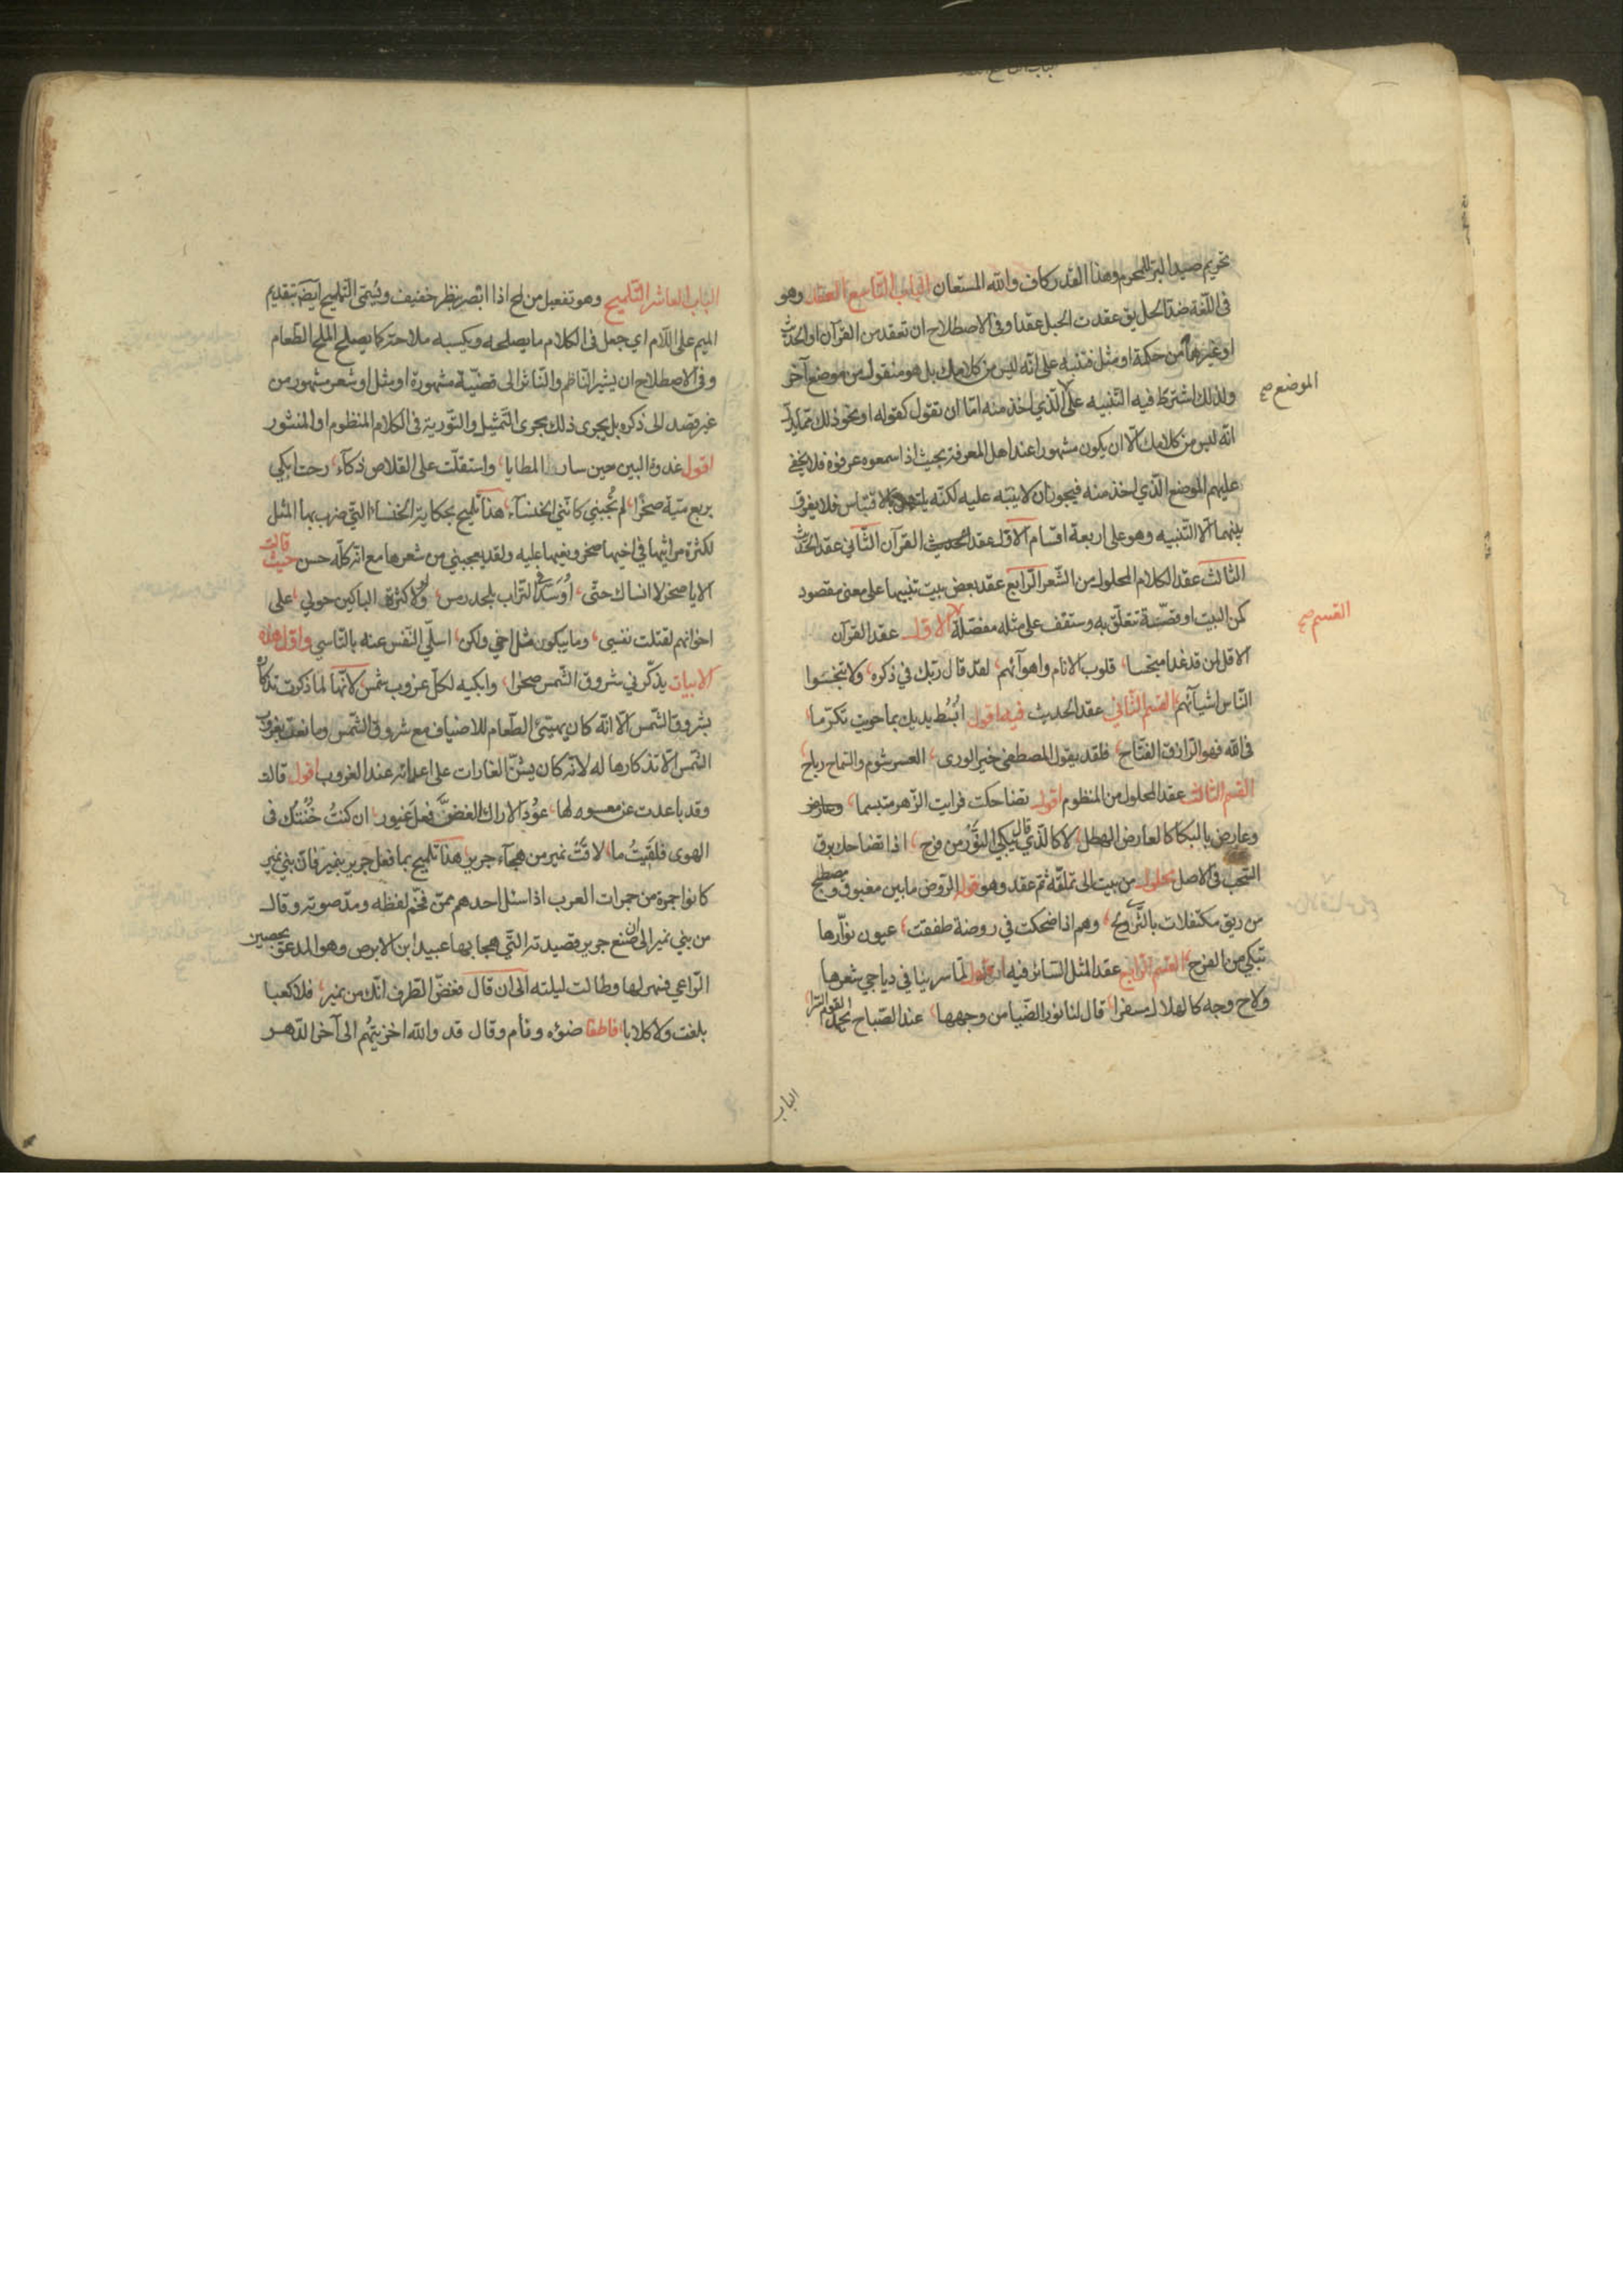 تحريم صيد البر للمحرم وهذا القدر كاف والله المستعان الباب التاسع العقد وهو
فى اللغة ضد الحل يق عقدت الحبل عقدا وفى الاصطلاح ان تعقد من القرآن او الحديث
او غيرهما من حكمة او مثل فتنبه على انه ليس من كلامك بل هو منقول من موضع آخر
ولذلك اشترط فيه التنبيه على الذي اخذ منه اما ان تقول كقوله او نحو ذلك مما يدل
الموضع صح
انه ليس من كلامك الا ان يكون مشهورا عند اهل المعرفة بحيث اذا سمعوه عرفوه فلا يخفى
عليهم الموضع الذي اخذ منه فيجوز ان لا ينبه عليه لكنه يلتبس بالاقتباس فلا يفرق
بينهما الا التنبيه وهو على اربعة اقسام الاول عقد الحديث القرآن الثاني عقد الحديث
الثالث عقد الكلام المحلول من الشعر الرابع عقد بعض بيت تنبيها على معنى مقصود
كمن البيت او قصة تتعلق به وستقف على مثله مفصلة الاول عقد القرآن
القسم صح
الا قل لمن قد غدا مبخسا، قلوب الانام واهوآئهم، لقد قال ربك في ذكره، ولا تبخسوا
الناس اشيآئهم، القسم الثاني عقد الحديث فيه اقول ابسط يديك بما حويت تكرما،
فى الله فهو الرازق الفتاح، فلقد يقول المصطفى خير الورى، العسر شوم والسماح رباح،
القسم الثالث عقد المحلول من المنظوم اقول تضاحكت فرايت الزهر متبسما، وعارض
وعارض بالبكا كالعارض الهطل، لا كالذي قال يبكي النور من فرح، اذا تضاحك برق
السحب فى الاصل محلول من بيت الى تملقه ثم عقد وهو قوله الروض ما بين مغبوق ومصطبح
من ريق مكتفلات بالثرى دلح، وهم اذا ضحكت في روضة طفقت، عيون نوارها
تبكي من الفرح، القسم الرابع عقد المثل السائر فيه اقول لما سرينا في دياجي شعرها
ولاح وجه كالهلال مسفرا، قال لنا نور الضيا من وجهها، عند الصباح يحمد القوم السرا،
الباب
الباب العاشر التلميح وهو تفعيل من لمح اذا ابصر بنظر خفيف ويسمى التمليح ايضا بتقديم
الميم على اللام اي جعل فى الكلام ما يصلحه ويكسبه ملاحة كما يصلح الملح الطعام
وفى الاصطلاح ان يشير الناظم والناثر الى قضية مشهورة او مثل او شعر مشهور من
غير قصد الى ذكره بل يجرى ذلك مجرى التمثيل والتورية فى الكلام المنظوم او المنثور
اقول غدوة البين حين سار المطايا، واستقلت على القلاص ذكآء، رحت ابكي
بربع مية صخرا، لم تجبني كانني الخنسآء، هذا تلميح بحكاية الخنساء التي ضرب بها المثل
لكثرة مراثيها في اخيها صخر ونعيها عليه ولقد يعجبني من شعرها مع انه كله حسن حيث قالت
الا يا صخر لا انساك حتى، اوسد فى التراب بلحد رمس، ولولا كثرة الباكين حولي، على
اخوانهم لقتلت نفسي، وما يبكون مثل اخي ولكن، اسلي النفس عنه بالتاسي واول هذه
الابيات يذكرني شروق الشمس صخرا، وابكيه لكل غروب شمس، لانها لما ذكرت تذكار
بشروق الشمس الا انه كان يهيئ الطعام للاضياف مع شروق الشمس وما نعت بغروب
الشمس الا تذكارها له لانه كان يشن الغارات على اعدائه عند الغروب اقول قالت
وقد باعدت عن معسوله لها، عود الاراك الغض فعل غيور، ان كنت خنتك فى
الهوى فلقيت ما، لاقت نمير من هجآء جرير، هذا تلميح بما فعل جرير بنمير فان بني نمير
كانوا جمرة من جمرات العرب اذا سئل احدهم ممن فخم لفظه ومد صوته وقال
من بني نمير الى ان صنع جرير قصيدته التي هجا بها عبيد ابن الابرص وهو المدعو بحصين
الراعي فسهر لها وطالت ليلته الى ان قال فغض الطرف انك من نمير، فلا كعبا
بلغت ولا كلابا، فاطفا ضوئه ونام وقال قد والله اخزيتهم الى آخر الدهر